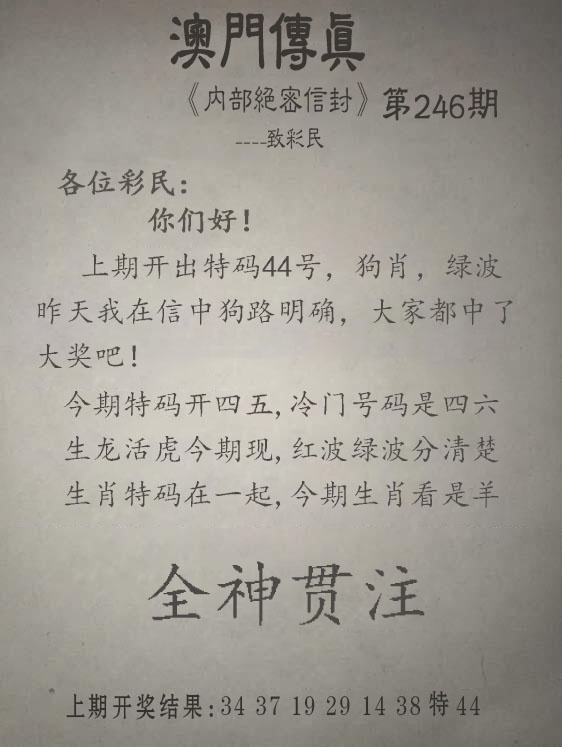 澳門傳眞
《内部絕密信封》第246期
----致彩民
各位彩民:
你们好!
上期开出特码44号，狗肖，绿波
昨天我在信中狗路明确，大家都中了
大奖吧!
今期特码开四五,冷门号码是四六
生龙活虎今期现,红波绿波分清楚
生肖特码在一起,今期生肖看是羊
全神贯注
上期开奖结果:34 37 19 29 14 38 特 44